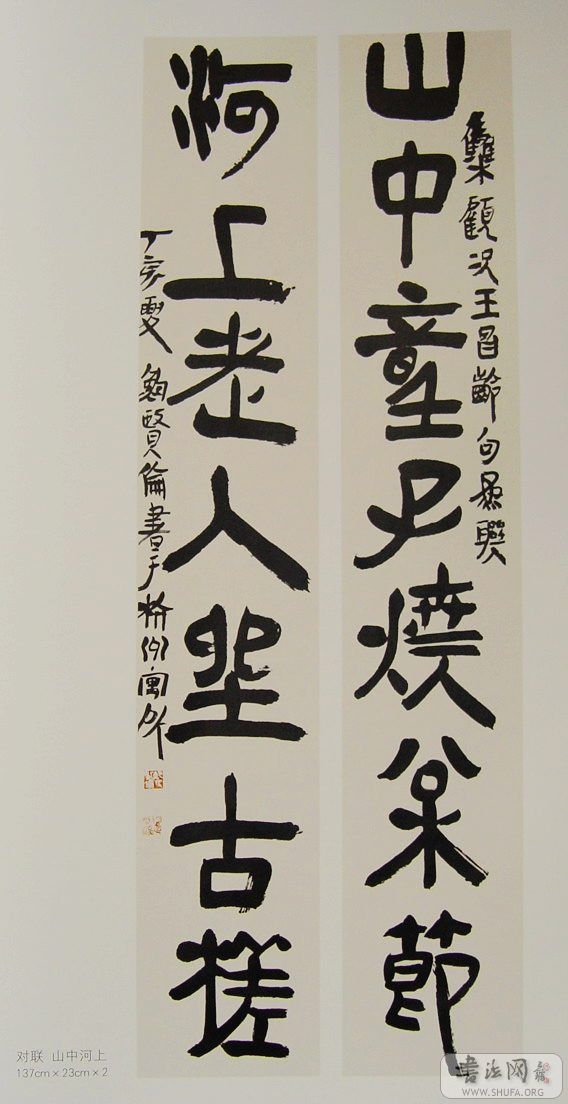 山中童子燒枀節
雧顧況王昌齡句為聯
河上老人坐古槎
丁亥夏 鮑賢倫書于寓所
对联 山中河上
137cm×23cm×2
书法网
WWW.SHUFA.ORG